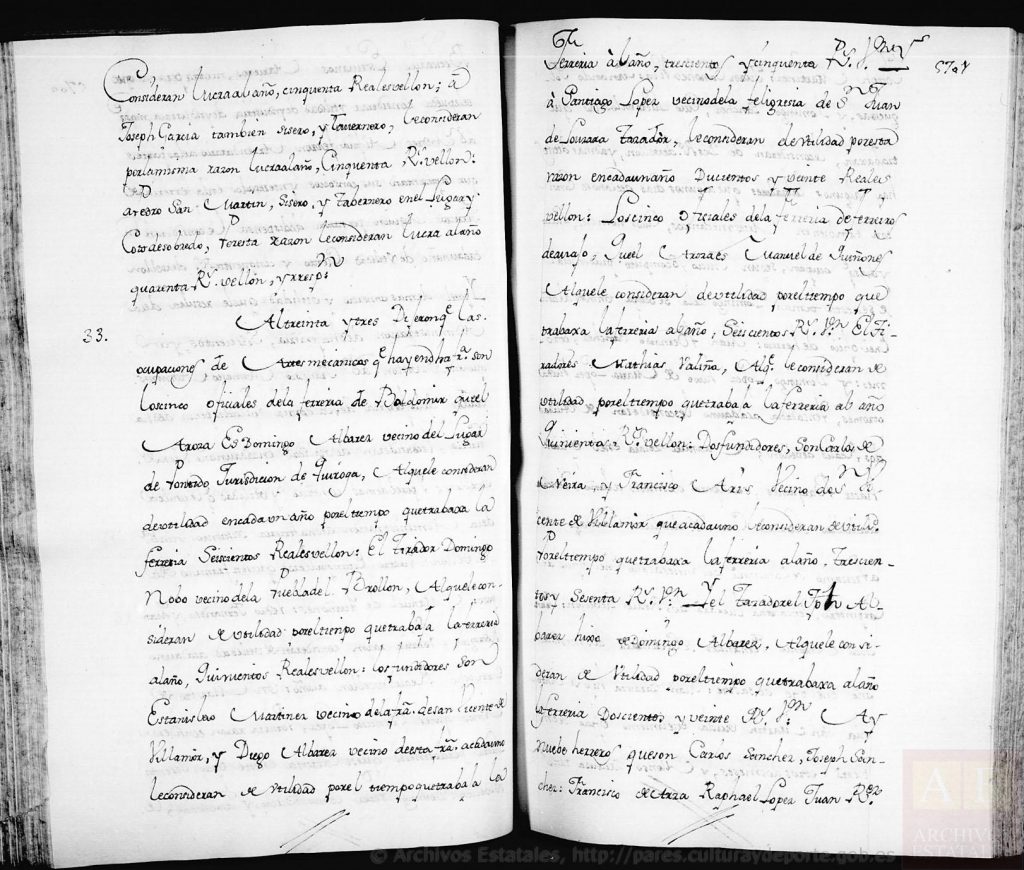 Consideran lucra al año, cinquenta Reales vellon; a
Joseph Garcia tambien sisero, y Tavernero, le consideran
por la misma razon lucra al año, Cinquenta R.^s vellon:
a Pedro San Martin, sisero, y tabernero en el Lugar y
Coto de sobrado, Por esta razon le consideran lucra al año
quarenta R.^s vellon, y rresp.^n
33.
A l treinta y tres Dijeron q.^e las
ocupacion.^s de Artes mecanicos q.^e hay en dha fra. son
los cinco oficiales de la ferreria de Baldomir que el
Aroza Es Domingo Albarez vecino del Lugar
de Jurisdicion de Quiroga, Al quele consideran
de utilidad en cada un año por el tiempo que trabaxa la
ferreria Seiscientos Reales vellon: El Tirador Domingo
Nobo vecino de la Puebla del Brollon, Al quele con-
sideran de utilidad por el tiempo que traba a la ferreria
al año, Quinientos Reales vellon: los fundidores son
Estanislao Martinez vecino de la fra. de san Vicente de
Villamor, y Diego Albarez vecino de esta fra. a cada uno
le consideran de utilidad por el tiempo que traba a la
ferreria à l año, trescientos y cinquenta R.^s
à Santiago Lopez vecino de la feligresia de S.^n Juan
de Louzara Tazador, le consideran de utilidad por esta
razon en cada un año Ducientos y veinte Reales
vellon: Los cinco oficiales de la ferreria de ferreiros
de avajo, Qu el Aroza es Manuel de Quiñones
Al quele consideran de utilidad por el tiempo que
trabaxa la ferreria al año, Seiscientos R.^s v.^n El Ti-
rador es Mathias Valiña, Al q.^e le consideran de
utilidad por el tiempo que traba à la ferreria al año
Quinienta R.^s vellon: Dos fundidores, Son Carlos de
Neira, y Francisco Arias Vecino de S.^n Vi-
cente de Villamor que a cada uno le consideran de utilid.^d
Por el tiempo que trabaxa la ferreria al año, Trescien-
tos y Sesenta R.^s v.^n y el Tazador el Albarez
hixo de Domingo Albarez, Al quele consi-
deran de Utilidad por el tiempo que trabaxa al año
la ferreria Doscientos y veinte R.^s v.^n: Ay
nuebe herreros que son Carlos Sanchez, Joseph San-
chez: Francisco de Arza Raphael Lopez Juan R.^ez
© Archivos Estatales, http://pares.culturaydeporte.gob.es
ARCHIVOS
ESTATALES